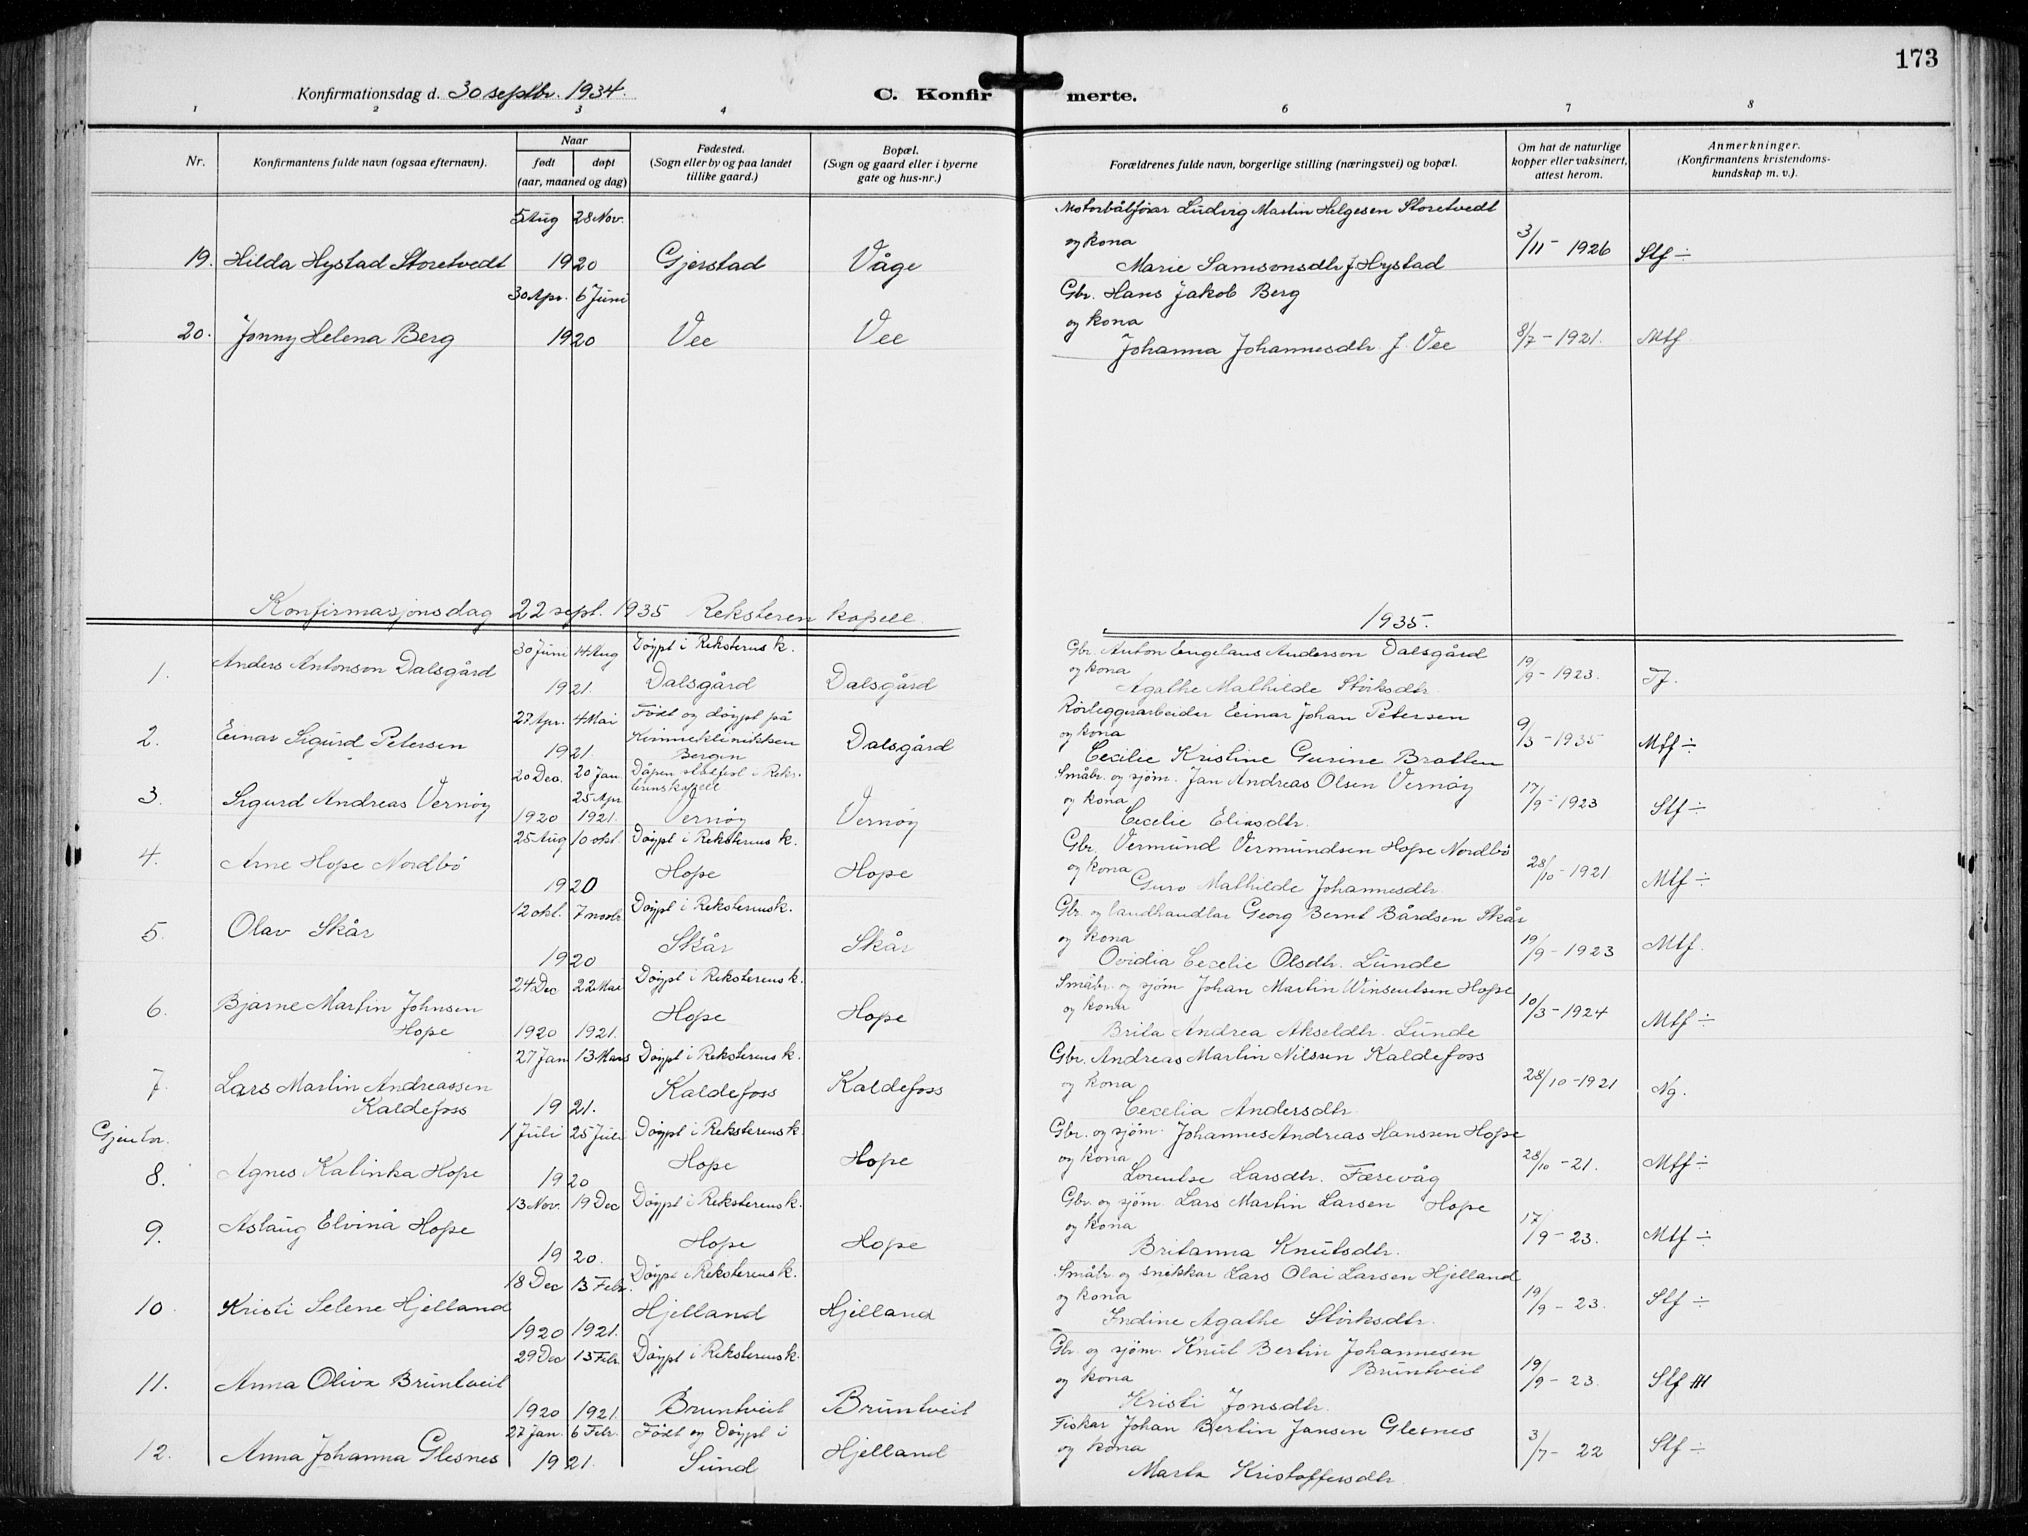 173
Konfirmationsdag d. 30 septbr. 1934.
C. Konfirmerte.
1 2 3 4 5 6 7 8
Nr.
Konfirmantens fulde navn (ogsaa efternavn).
Naar
født
døpt
(aar, maaned og dag)
Fødested.
(Sogn eller by og paa landet
tillike gaard.)
Bopæl.
(Sogn og gaard eller i byerne
gate og hus-nr.)
Forældrenes fulde navn, borgerlige stilling (næringsvei) og bopæl.
Om hat de naturlige
kopper eller vaksinert,
attest herom.
Anmerkninger.
(Konfirmantens kristendoms-
kundskap m. v.).
5 Aug 28 Nov. Motorbåtförar Ludvig Martin Helgesen Storetvedt
og kona
19. Hilda Hystad Storetvedt 1920 Gjerstad Våge Marie Samsonsdtr f. Hystad 3/11 - 1926 Stf ÷
30 Apr. 6 Juni Gbr. Hans Jakob Berg
og kona
20. Jonny Helena Berg 1920 Vee Vee Johanna Johannesdtr. f. Vee 8/7 - 1921. Mtf
Konfirmasjonsdag 22 sept. 1935 Reksteren kapell. 1935.
30 Juni 14 Aug Döypt i Reksterens k. Gbr. Anton Engelaus Anderson Dalsgård
og kona
1. Anders Antonson Dalsgård 1921. Dalsgård Dalsgård Agathe Mathilde Störksdtr. 19/9 - 1923. Tf.
27 Apr. 4 Mai Födt og döypt på Rörleggerarbeider Einar Johan Petersen
og kona
2. Einar Sigurd Petersen 1921. Kvinneklinikken Dalsgård 9/3 - 1935 Mtf ÷
Bergen Cecilie Kristine Gurine Bratten
20 Des. 20 Jan. Dåpen stadfest i Rekste-
renskapell Småbr. og sjöm. Jan Andreas Olsen Vernöy
og kona
3. Sigurd Andreas Vernöy 25 Apr. 17/9 - 1923 Stf ÷
1920 1921. Vernöy Vernöy Cecelie Eliasdtr.
25 Aug 10 okt. Döypt i Reksterens k. Gbr. Vermund Vermundsen Hope Nordbö
og kona
4. Arne Hope Nordbö 1920 Hope Hope Guro Mathilde Johannesdtr. 28/10 - 1921 Mtf ÷
12 okt. 7 novbr. Döypt i Reksterens k. Gbr. og landhandlar Georg Bernt Bårdsen Skår
og kona
5. Olav Skår 1920 Skår Skår Ovidia Cecelie Olsdtr. Lunde 19/9 - 1923 Mtf.
24 Dec 22 Mai Döypt i Reksterens k. Småbr. og sjöm Johan Martin Winsentsen Hope
og kona
6. Bjarne Martin Johnsen
Hope 1920 1921. Hope Hope Brita Andrea Akseldtr. Lunde 10/3 - 1924 Mtf ÷
27 Jan 13 Mars Döypt i Reksterens k. Gbr. Andreas Martin Nilssen Kaldefoss
og kona
7. Lars Martin Andreassen
Kaldefoss 1921. Kaldefoss Kaldefoss Cecelia Andersdtr. 28/10 - 1921 Ng.
Gjentor.
1 Juli 25 Juli Döypt i Reksterens k. Gbr. og sjöm. Johannes Andreas Hanssen Hope
og kona
8. Agnes Katinka Hope 1920 Hope Hope Lorentse Larsdtr. Færevåg 28/10 - 21. Mtf ÷
13 Nov. 19 Dec Döypt i Reksterens k. Gbr. og sjöm. Lars Martin Larsen Hope
og kona
9. Aslaug Elvina Hope 1920. Hope Hope Britanna Knutsdtr. 17/9 - 23. Mtf ÷
18 Dec 13 Febr. Döypt i Reksterens k. Småbr og snekkar Lars Olai Larsen Hjelland
og kona
10. Kristi Selene Hjelland 1920 1921. Hjelland Hjelland Indine Agathe Störksdtr. 19/9 - 23. Stf ÷
29 Dec 13 Febr. Döypt i Reksterens k. Gbr. og sjöm. Knut Bertin Johannesen
Bruntveit
og kona
11. Anna Oliva Bruntveit 1920 1921. Bruntveit Bruntveit Kristi Jonsdtr. 19/9 - 23. Stf
27 Jan. 6 Febr. Födt og Döypt i Fiskar Johan Bertin Jansen Glesnes
og kona
12. Anna Johanna Glesnes 1921. Sund Hjelland Marta Kristoffersdtr. 3/7 - 22 Stf ÷